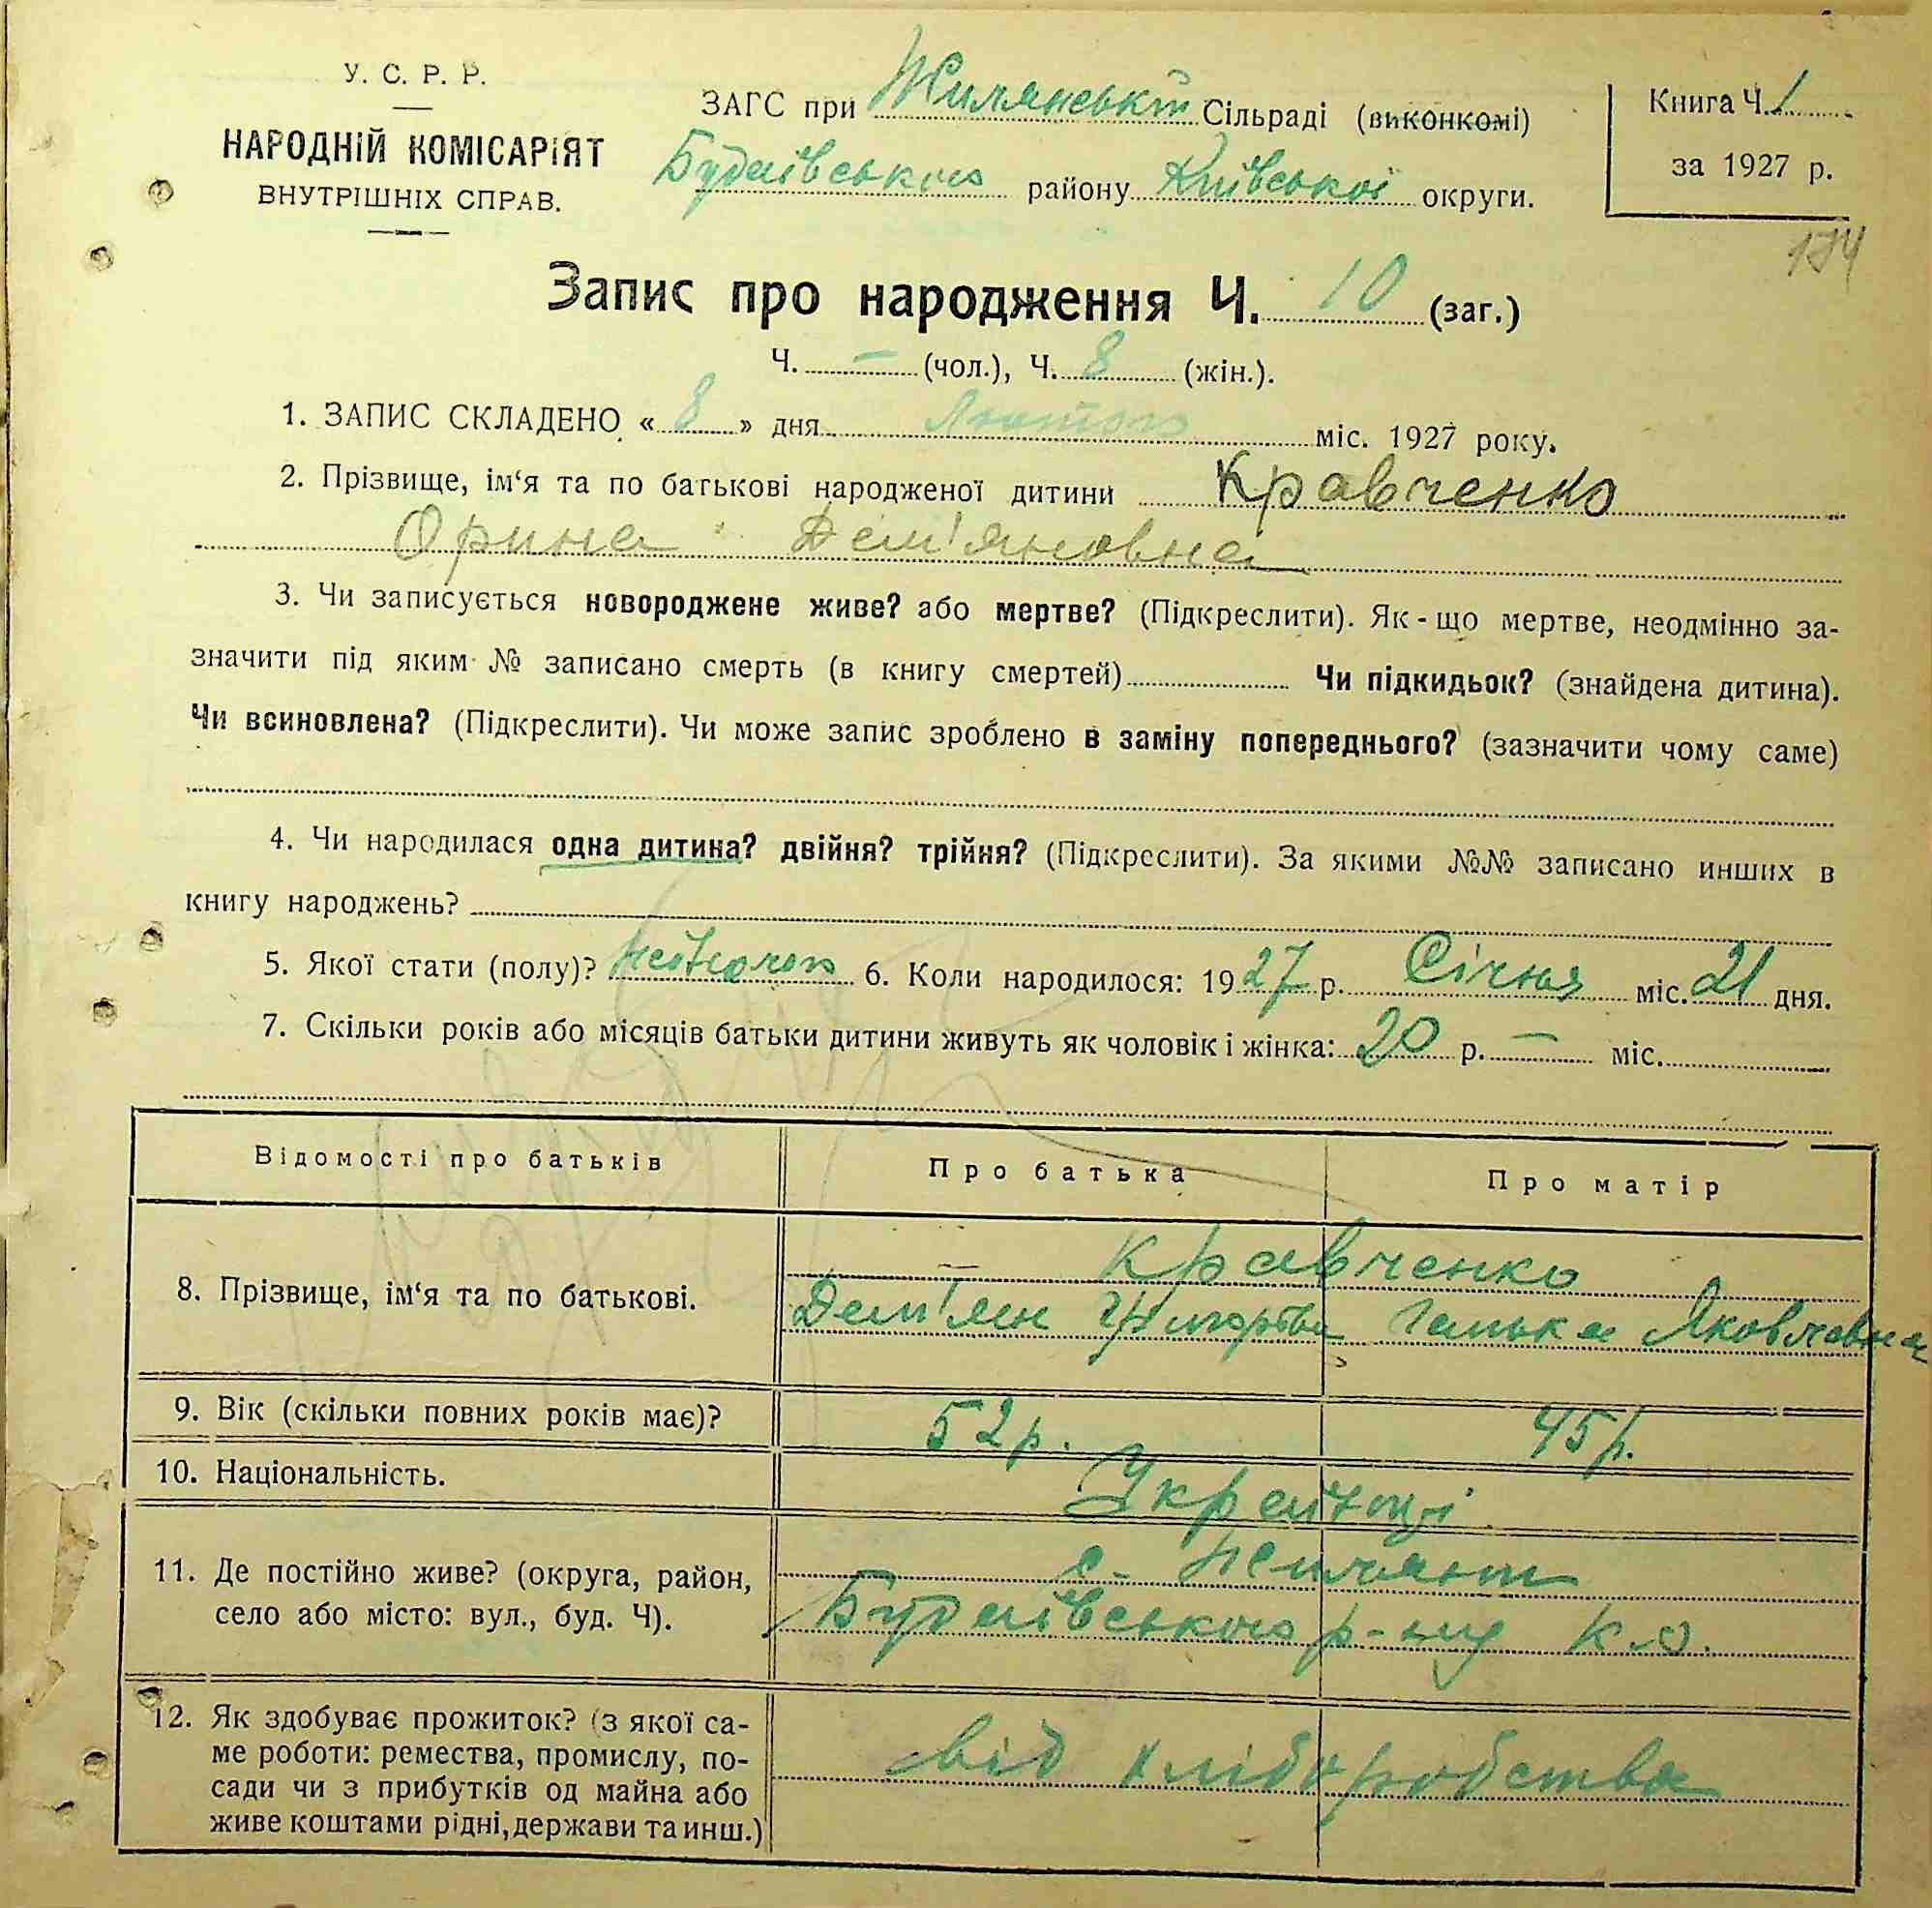 У. С. Р. Р.
НАРОДНІЙ КОМІСАРІЯТ
ВНУТРІШНІХ СПРАВ.
ЗАГС при Жилянській Сільраді (виконкомі)
Будаївського району Київської округи.
Книга Ч. 1
за 1927 р.
174
Запис про народження Ч. 10 (заг.)
Ч. — (чол.), Ч. 8 (жін.).
1. ЗАПИС СКЛАДЕНО « 8 » дня Лютого міс. 1927 року.
2. Прізвище, ім‘я та по батькові народженої дитини Кравченко
Орина Дем'яновна
3. Чи записується новороджене живе? або мертве? (Підкреслити). Як-що мертве, неодмінно за-
значити під яким № записано смерть (в книгу смертей) Чи підкидьок? (знайдена дитина).
Чи всиновлена? (Підкреслити). Чи може запис зроблено в заміну попереднього? (зазначити чому саме)
4. Чи народилася одна дитина? двійня? трійня? (Підкреслити). За якими №№ записано инших в
книгу народжень?
5. Якої стати (полу)? 6. Коли народилося: 1927 р. Січня міс. 21 дня.
7. Скільки років або місяців батьки дитини живуть як чоловік і жінка: 20 р. — міс.
Відомості про батьків Про батька Про матір
8. Прізвище, ім‘я та по батькові. Кравченко
Дем'ян Григоров Ганька Яковлевна
9. Вік (скільки повних років має)? 52 р. 45 р.
10. Національність. Українці
11. Де постійно живе? (округа, район,
село або місто: вул., буд. Ч).
с. Жиляни
Будаївського р-ну К.О.
12. Як здобуває прожиток? (з якої са-
ме роботи: ремества, промислу, по-
сади чи з прибутків од майна або
живе коштами рідні, держави та инш.)
від хліборобства